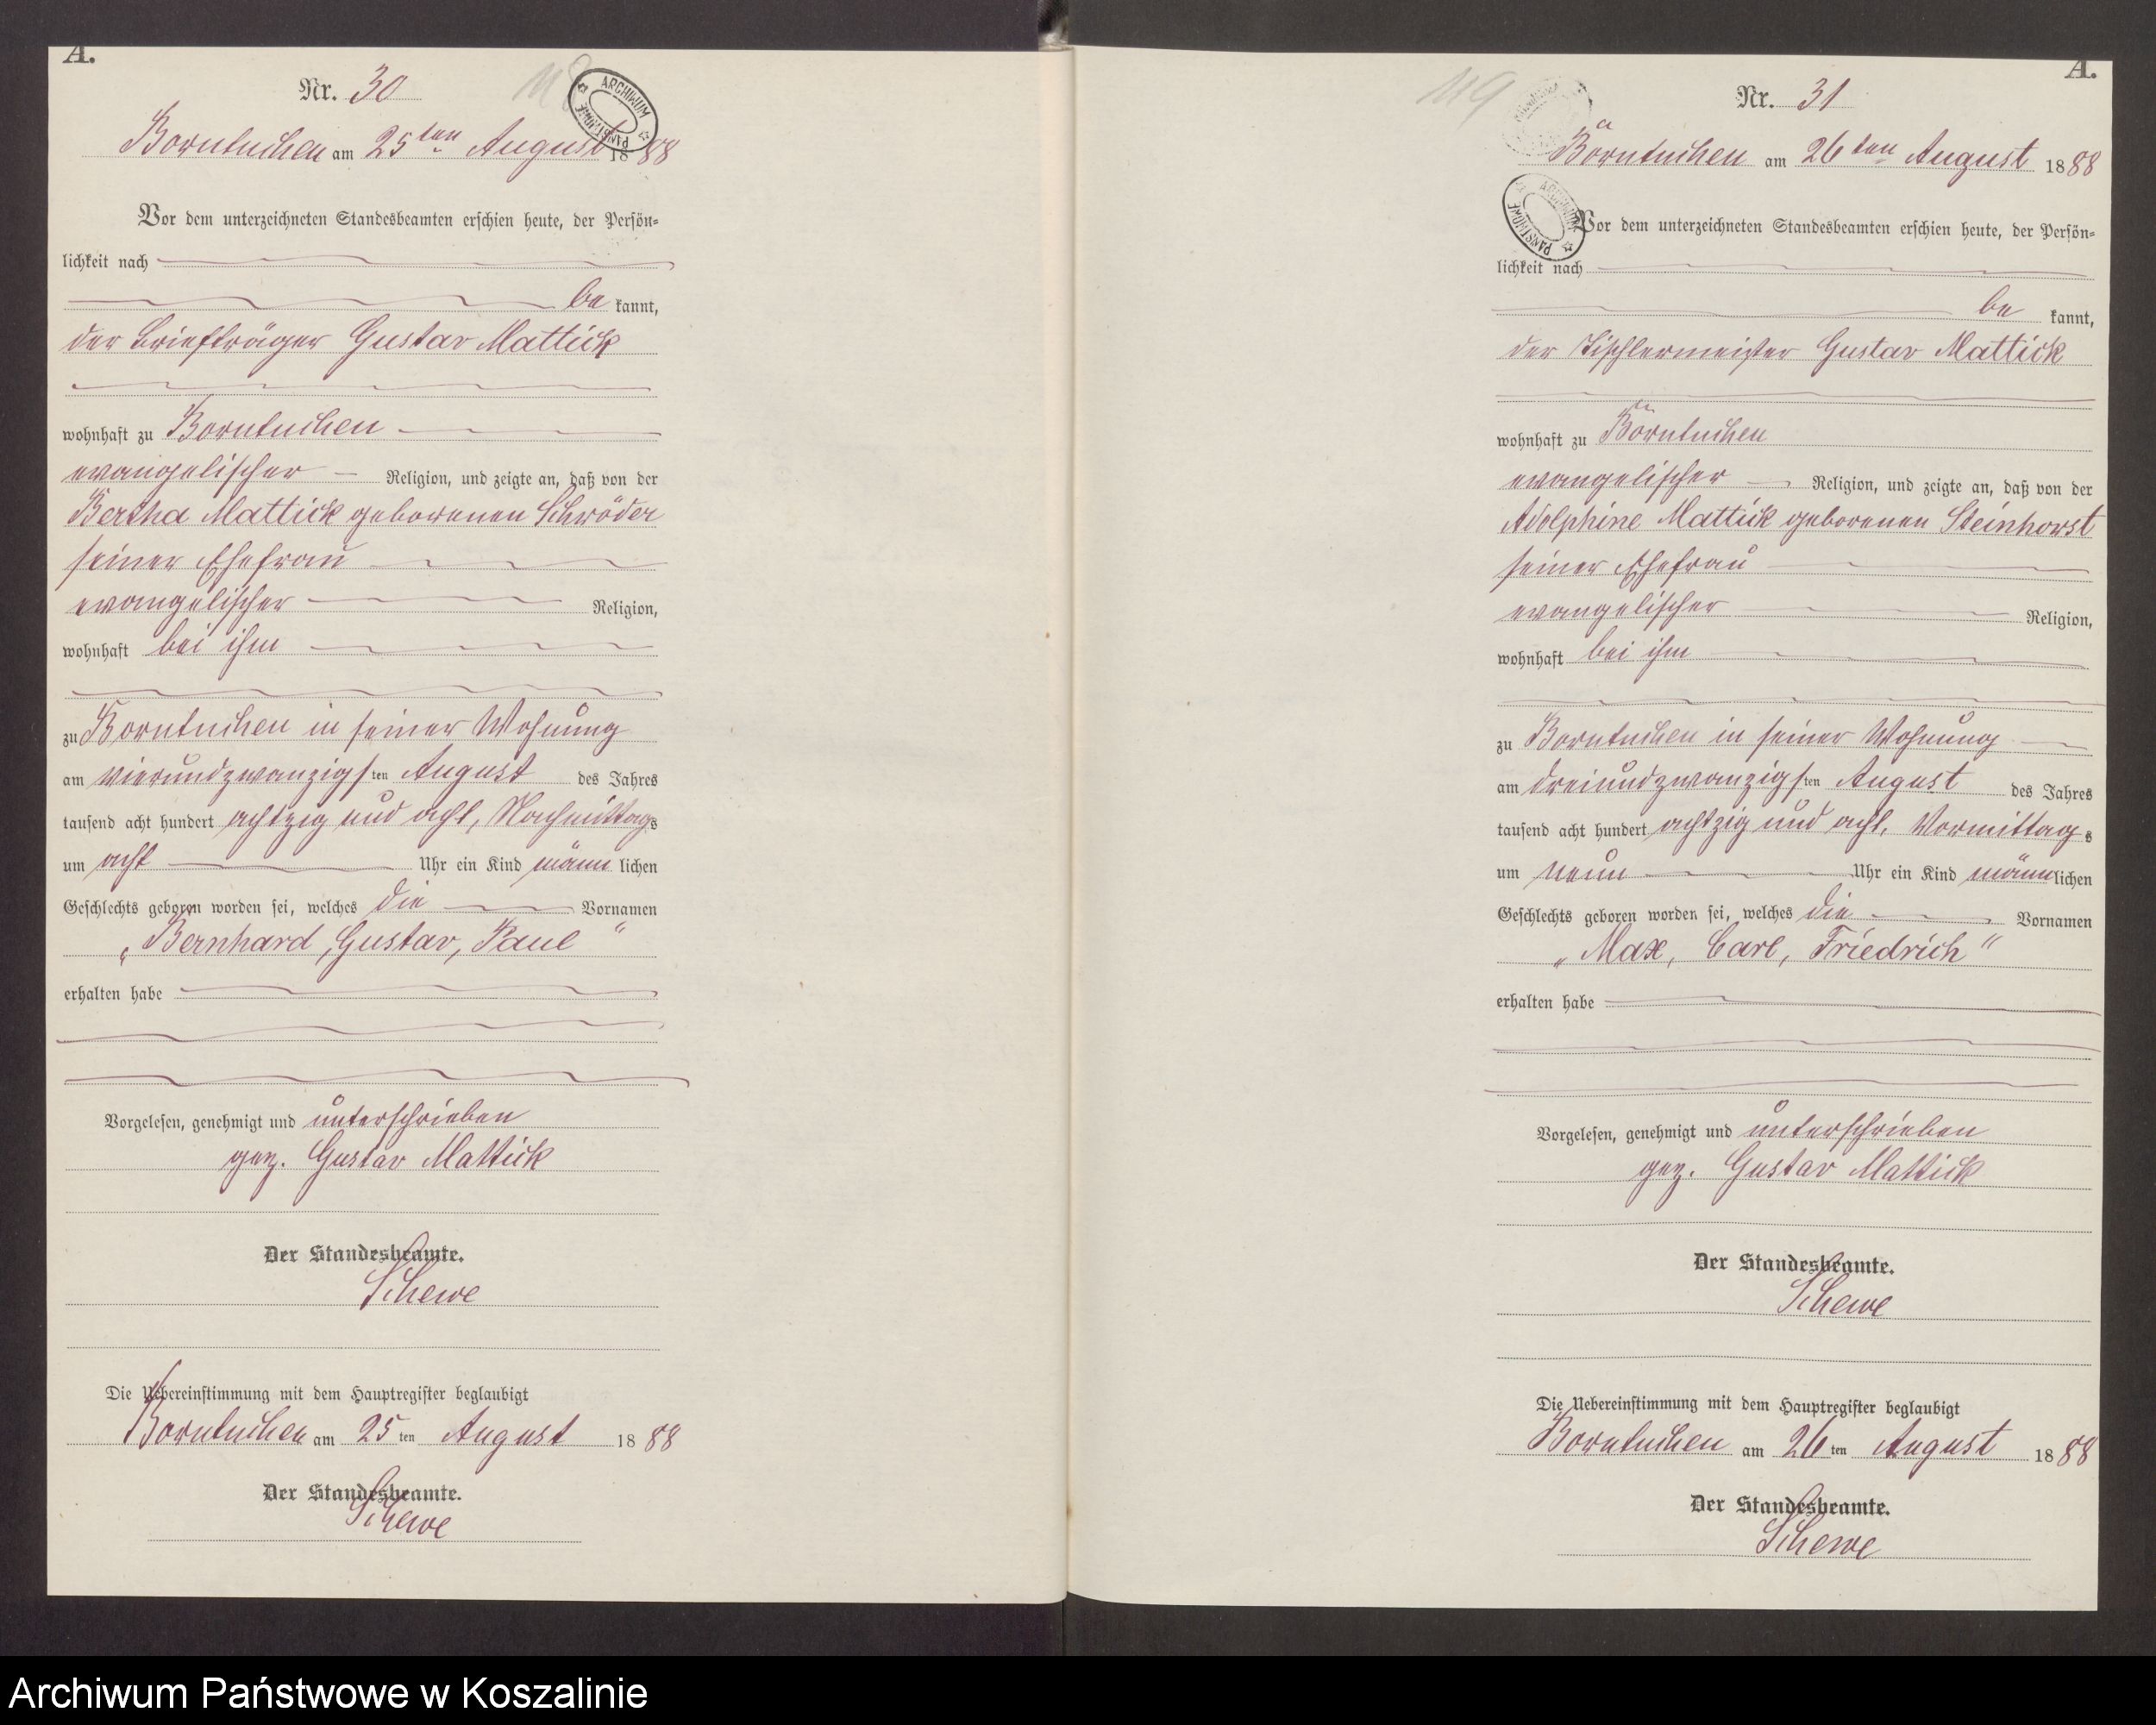 A.
Nr. 30
118
ARCHIWUM PAŃSTWOWE
Borntuchen am 25ten August 1888
Vor dem unterzeichneten Standesbeamten erschien heute, der Persön-
lichkeit nach
be kannt,
der Briefträger Gustav Mattick
wohnhaft zu Borntuchen
evangelischer Religion, und zeigte an, daß von der
Bertha Mattick geborenen Schröder
seiner Ehefrau
evangelischer Religion,
wohnhaft bei ihm
zu Borntuchen in seiner Wohnung
am vierundzwanzigsten August des Jahres
tausend acht hundert achtzig und acht, Nachmittags
um acht Uhr ein Kind männlichen
Geschlechts geboren worden sei, welches die Vornamen
„Bernhard, Gustav, Paul“
erhalten habe
Vorgelesen, genehmigt und unterschrieben
gez. Gustav Mattick
Der Standesbeamte.
Schewe
Die Uebereinstimmung mit dem Hauptregister beglaubigt
Borntuchen am 25ten August 1888
Der Standesbeamte.
Schewe
A.
Nr. 31
119
Borntuchen am 26ten August 1888
ARCHIWUM PAŃSTWOWE
Vor dem unterzeichneten Standesbeamten erschien heute, der Persön-
lichkeit nach
be kannt,
der Tischlermeister Gustav Mattick
wohnhaft zu Borntuchen
evangelischer Religion, und zeigte an, daß von der
Adolphine Mattick geborenen Steinhorst
seiner Ehefrau
evangelischer Religion,
wohnhaft bei ihm
zu Borntuchen in seiner Wohnung
am dreiundzwanzigsten August des Jahres
tausend acht hundert achtzig und acht, Vormittags
um neun Uhr ein Kind männlichen
Geschlechts geboren worden sei, welches die Vornamen
„Max, Carl, Friedrich“
erhalten habe
Vorgelesen, genehmigt und unterschrieben
gez. Gustav Mattick
Der Standesbeamte.
Schewe
Die Uebereinstimmung mit dem Hauptregister beglaubigt
Borntuchen am 26ten August 1888
Der Standesbeamte.
Schewe
Archiwum Państwowe w Koszalinie